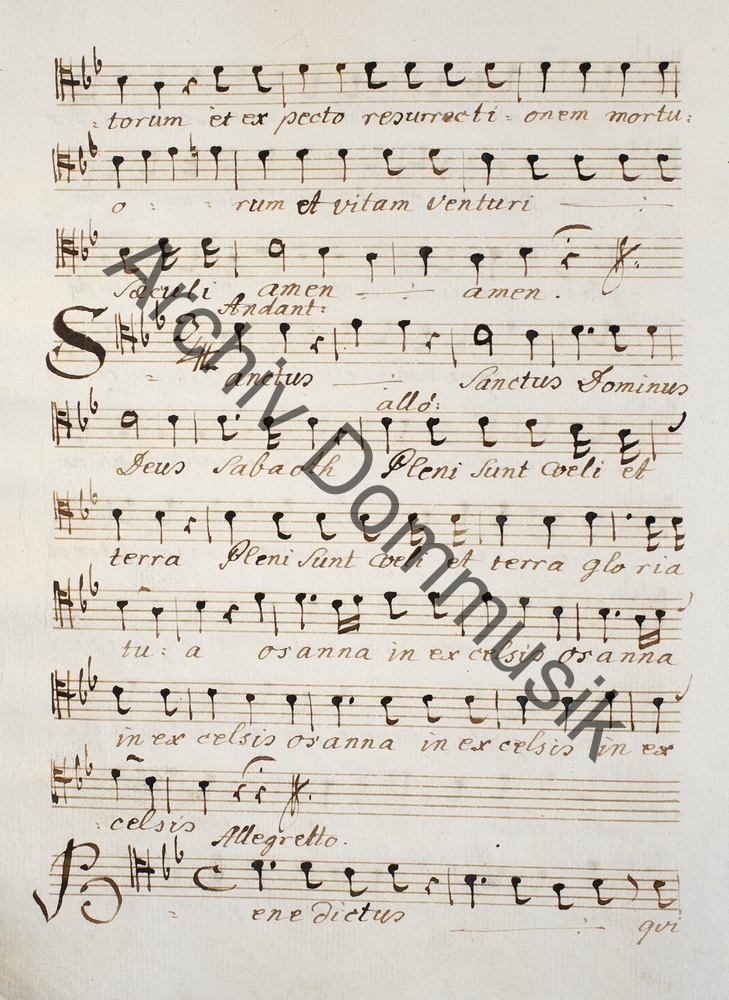 - torum et ex pecto resurrecti - onem mortu:
o - - rum et vitam venturi
sæculi amen - - amen.
Andant:
Sanctus Sanctus Dominus
allo:
Deus Sabaoth Pleni Sunt Cœli et
terra Pleni Sunt Cœli et terra glo ria
tu: a osanna in ex celsis osanna
in ex celsis osanna in ex celsis in ex
celsis
Allegretto.
Bene dictus qui
Archiv Dommusik